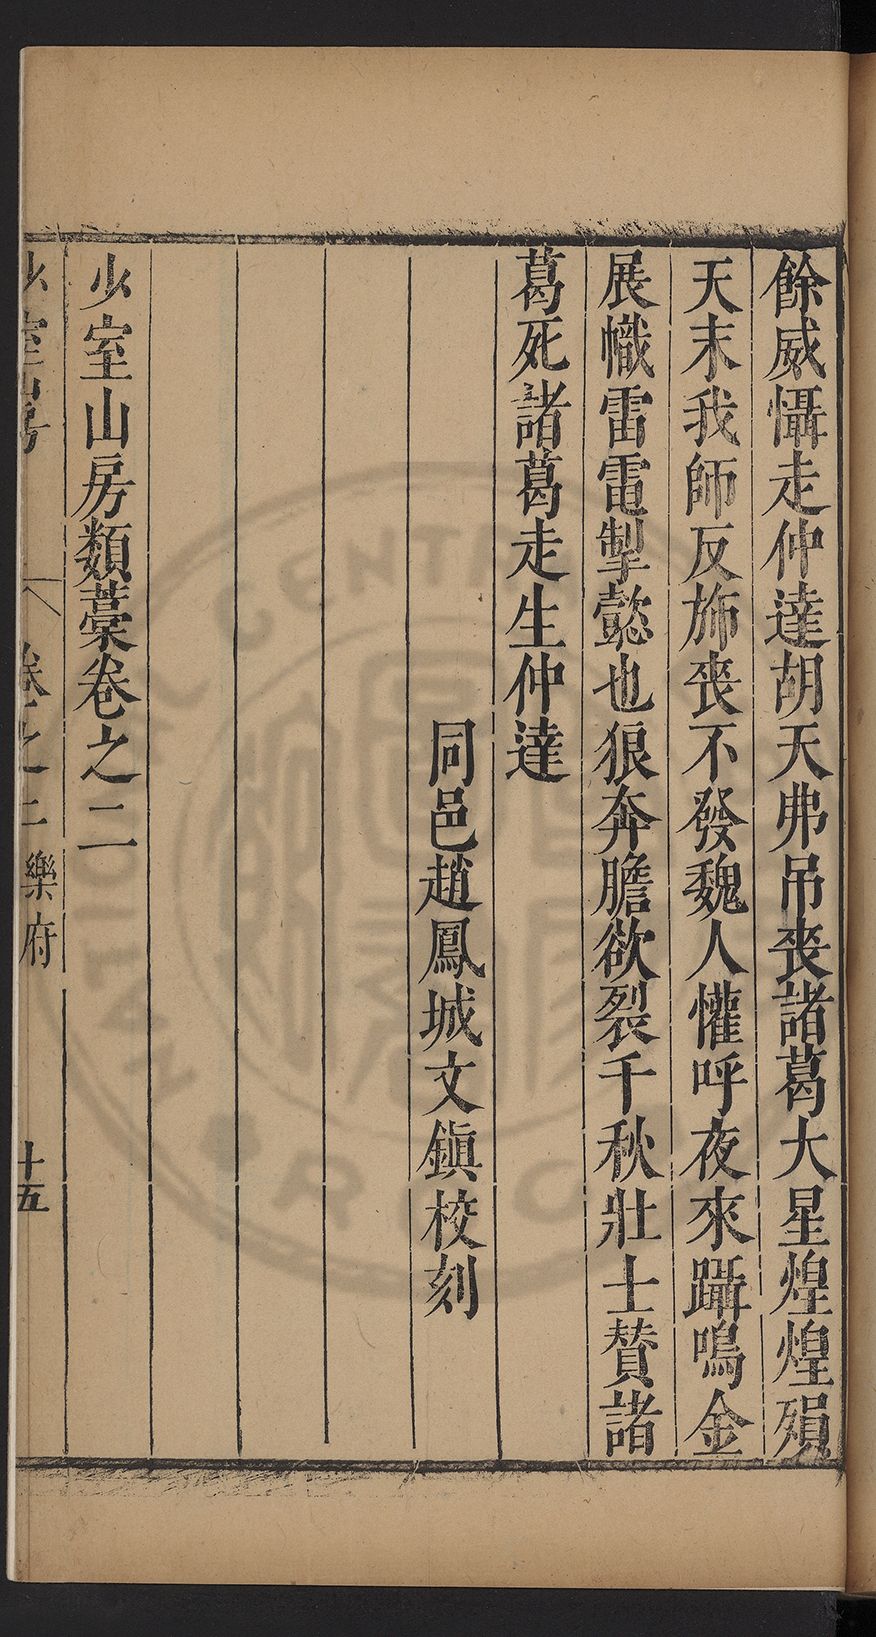 餘威懾走仲達胡天弗吊喪諸葛大星煌煌殞
天末我師反斾喪不發魏人懽呼夜來躡鳴金
展幟雷電掣懿也狼奔膽欲裂千秋壯士賛諸
葛死諸葛走生仲達
同邑趙鳳城文鎭校刻
少室山房類藁卷之二
少室山房
卷之二 樂府
十五